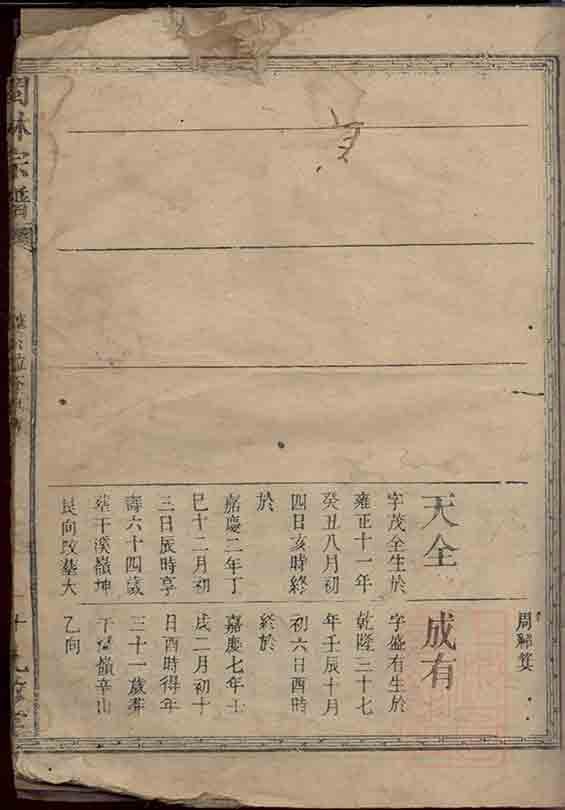 天全
字茂全生於
雍正十一年
癸丑八月初
四日亥時終
於
嘉慶二年丁
巳十二月初
三日辰時享
壽六十四歲
塟干溪嶺坤
艮向改塟大
周歸
成有
字盛有生於
乾隆三十七
年壬辰十月
初六日酉時
終於
嘉慶七年壬
戌二月初十
日酉時得年
三十一歲葬
嶺辛山
乙向
林宗譜